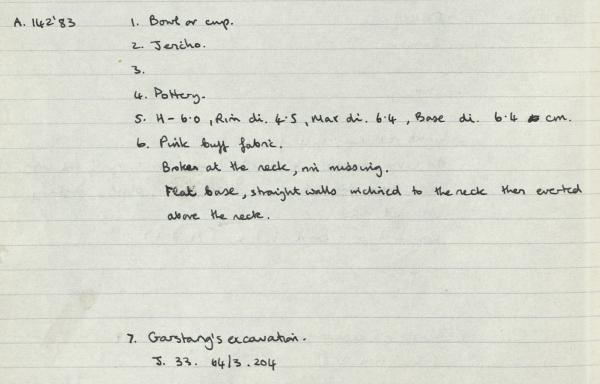 A. 142'83 1. Bowl or cup.
2. Jericho.
3.
4. Pottery.
5. H - 6.0, Rim di. 4.5, Max di. 6.4, Base di. 6.4 cm.
6. Pink buff fabric.
Broken at the neck, rim missing.
Flat base, straight walls inclined to the neck then everted
above the neck.
7. Garstang's excavation.
J. 33. 64/3.204